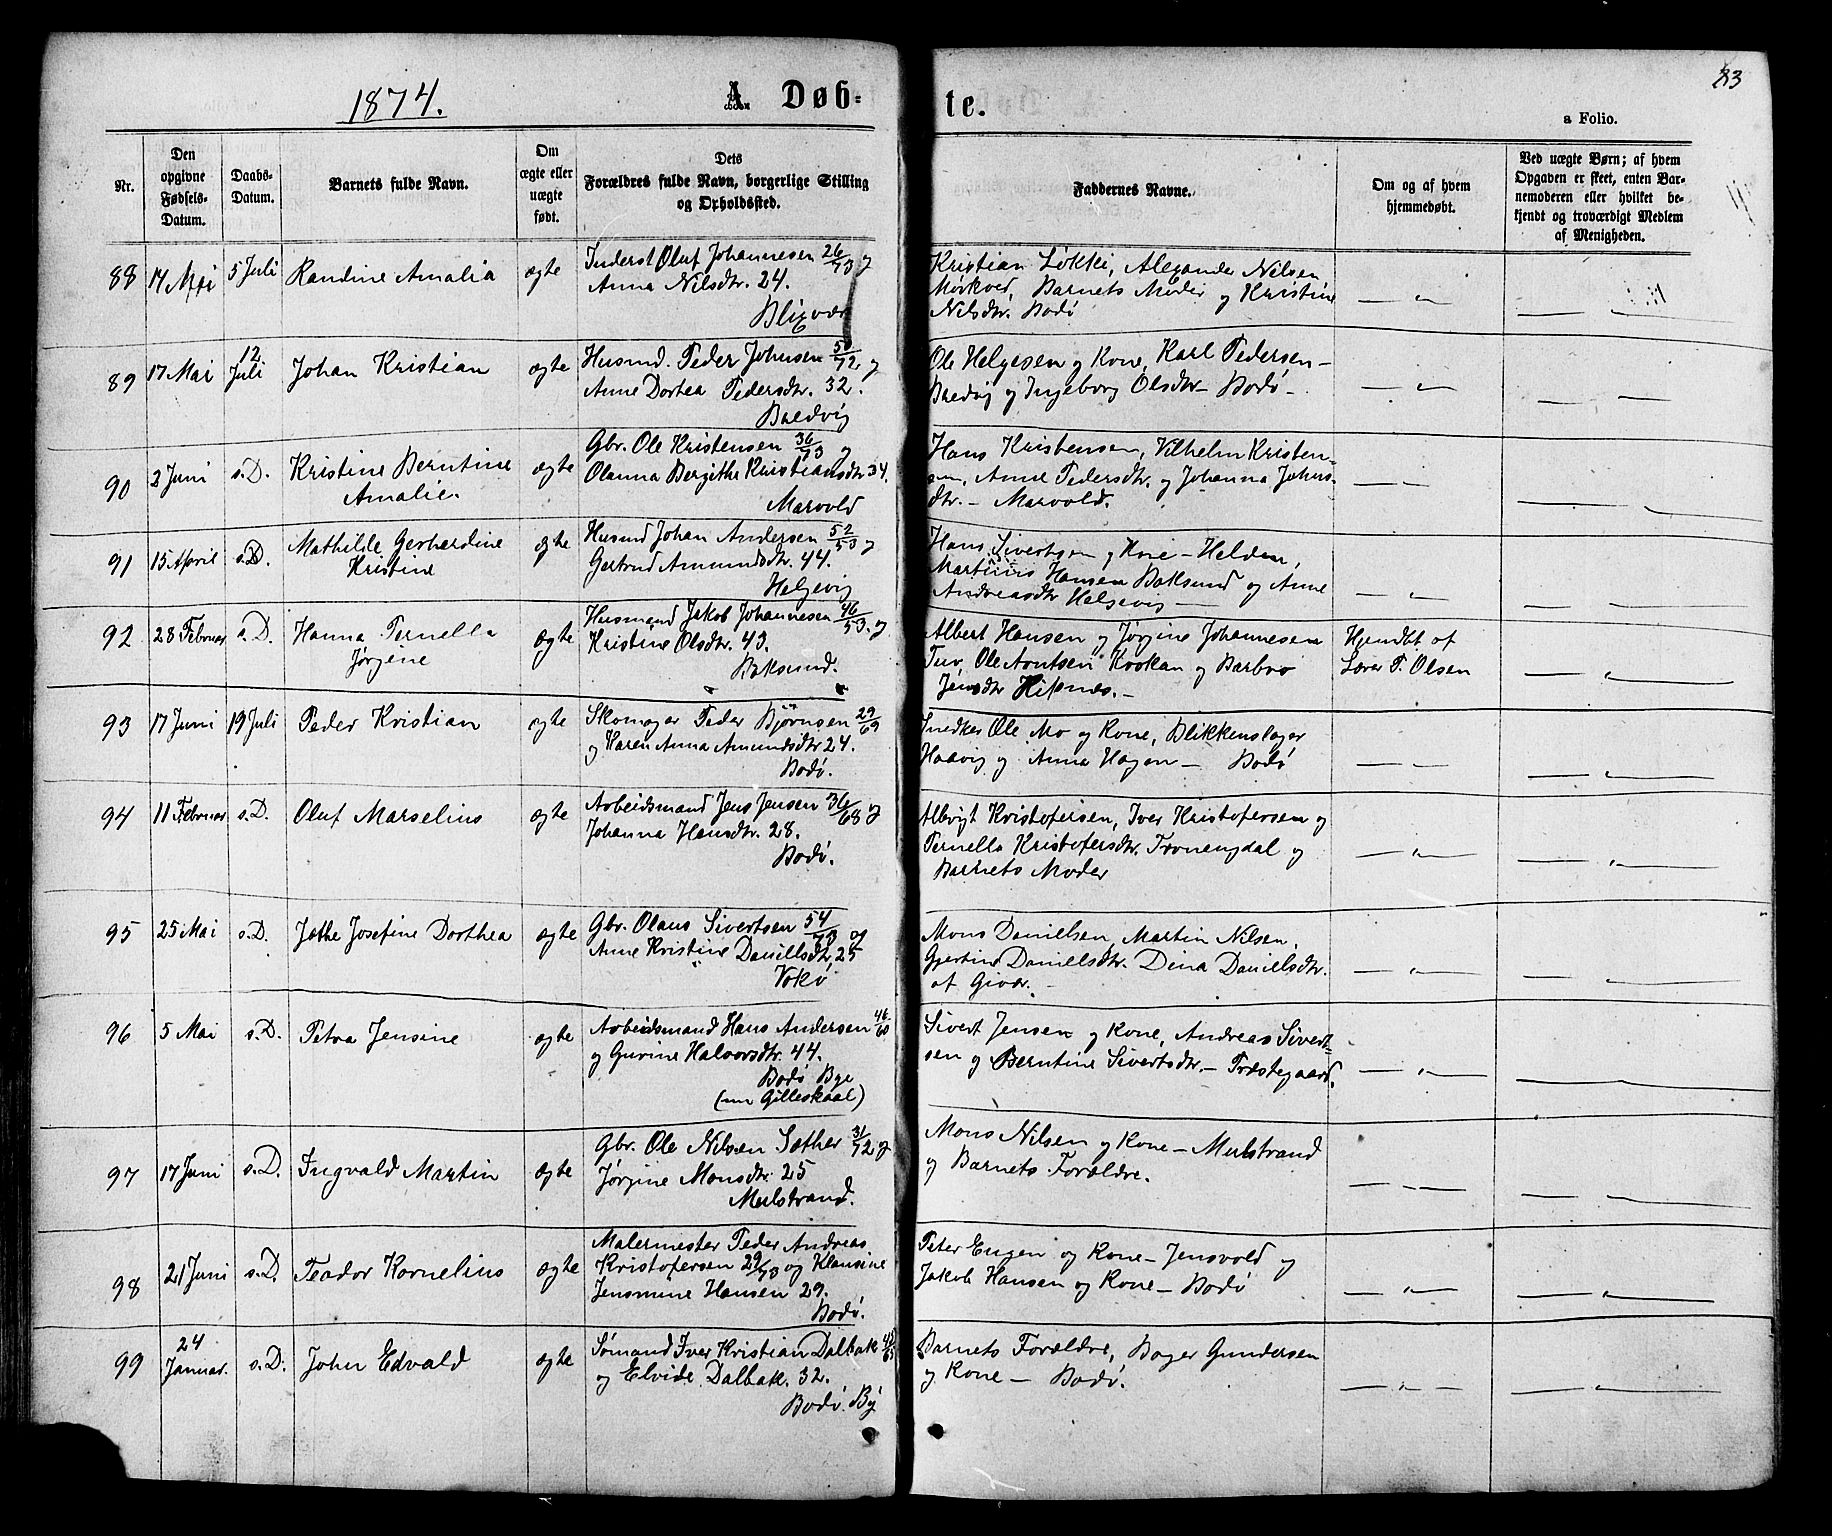 1874.
A. Døb-
te.
83
a Folio.
Nr.
Den
opgivne
Fødsels-
Datum.
Daabs-
Datum.
Barnets fulde Navn.
Om
ægte eller
uægte
født.
Dets
Forældres fulde Navn, borgerlige Stilling
og Opholdssted.
Faddernes Navne.
Om og af hvem
hjemmedøbt.
Ved uægte Børn; af hvem
Opgaven er skeet, enten Bar-
nemoderen eller hvilket be-
kjendt og troværdigt Medlem
af Menigheden.
88
14 Mai
5 Juli
Randine Amalia
ægte
Inderst Oluf Johannesen 26/73 og
Anna Nilsdtr. 24.
Blixvær
Kristian Løkke, Alexander Nilsen
Mørkved, Barnets Moder og Kristine
Nilsdtr. Bodø
— " —
89
17 Mai
12
Juli
Johan Kristian
ægte
Husmd. Peder Johnsen 50/72 og
Anne Dorthea Pedersdtr. 32.
Bredvig
Ole Helgesen og Kone, Karl Pedersen —
Bredvig og Ingeborg Olsdtr — Bodø —
— " —
90
2 Juni
s.D.
Kristine Berntine
Amalie.
ægte
Gbr. Ole Kristensen 36/73 og
Olanna Bergithe Kristiansdtr 34.
Marvold
Hans Kristensen, Vilhelm Kristen-
sen, Anne Pedersdtr. og Johanna Johns-
dtr. — Marvold.
— " —
91
15 April
s.D.
Mathilde Gerhardine
Kristine
ægte
Husmd Johan Andersen 52/53 og
Gertrud Amundsdtr. 44.
Helgevig
Hans Sivertsen og Kone — Helden,
Martinus Hansen Boksund og Anne
Andreasdtr Helgevig —
— " —
92
28 Februar
s.D.
Hanna Pernella
Jørgine
ægte
Husmand Jakob Johannesen 46/53. og
Kristine Olsdtr. 43.
Boksund.
Albert Hansen og Jørgine Johannesen
Tuv, Ole Arntsen Kvokan og Barbro
Jensdtr Hiknæs. —
Hjemdbt af
Lærer P. Olsen
93
17 Juni
19 Juli
Peder Kristian
ægte
Skomager Peder Bjørnsen 29/69
og Karen Anna Amundsdtr 24.
Bodø.
Snedker Ole Mo og Kone, Blikkenslager
Haavig og Anna Hagen — Bodø
— " —
94
11 Februar
s.D.
Oluf Marselius
ægte
Arbeidsmand Jens Jensen 36/68 og
Johanna Hansdtr. 28.
Bodø.
Albrigt Kristofersen, Iver Kristofersen og
Pernella Kristofersdtr. Tronengdal og
Barnets Moder
— " —
95
25 Mai
s.D.
Jethe Josefine Dorthea
ægte
Gbr. Olaus Sivertsen 54/73 og
Anne Kristine Danielsdtr. 25
Vokø
Mons Danielsen, Martin Nilsen,
Gjertine Danielsdtr. Dina Danielsdtr.
af Givær. —
— " —
96
5 Mai
s.D.
Petra Jensine
ægte
Arbeidsmand Hans Andersen 46/60
og Gurine Halvorsdtr. 44.
Bodø Bye
(nu Gilleskaal)
Sivert Jensen og Kone, Andreas Sivert-
sen og Berntine Sivertsdtr. — Præstegaard.
— " —
97
17 Juni
s.D.
Ingvald Martin
ægte
Gbr. Ole Nilsen Sæther 31/72 og
Jørgine Monsdtr. 25
Mulstrand.
Mons Nilsen og Kone — Mulstrand
og Barnets Forældre.
— " —
98
21 Juni
s.D.
Teador Kornelius
ægte
Malermester Peder Andreas
Kristofersen 29/73 og Klausine
Jensmine Hansen 29.
Bodø.
Peter Eugen og Kone — Jensvold og
Jakob Hansen og Kone — Bodø
— " —
99
24
Januar.
s.D.
John Edvald
ægte
Sømand Iver Kristian Dalbak
og Elvide Dalbak. 32.
Bodø By
Barnets Forældre, Bager Gundersen
og Kone — Bodø.
— " —